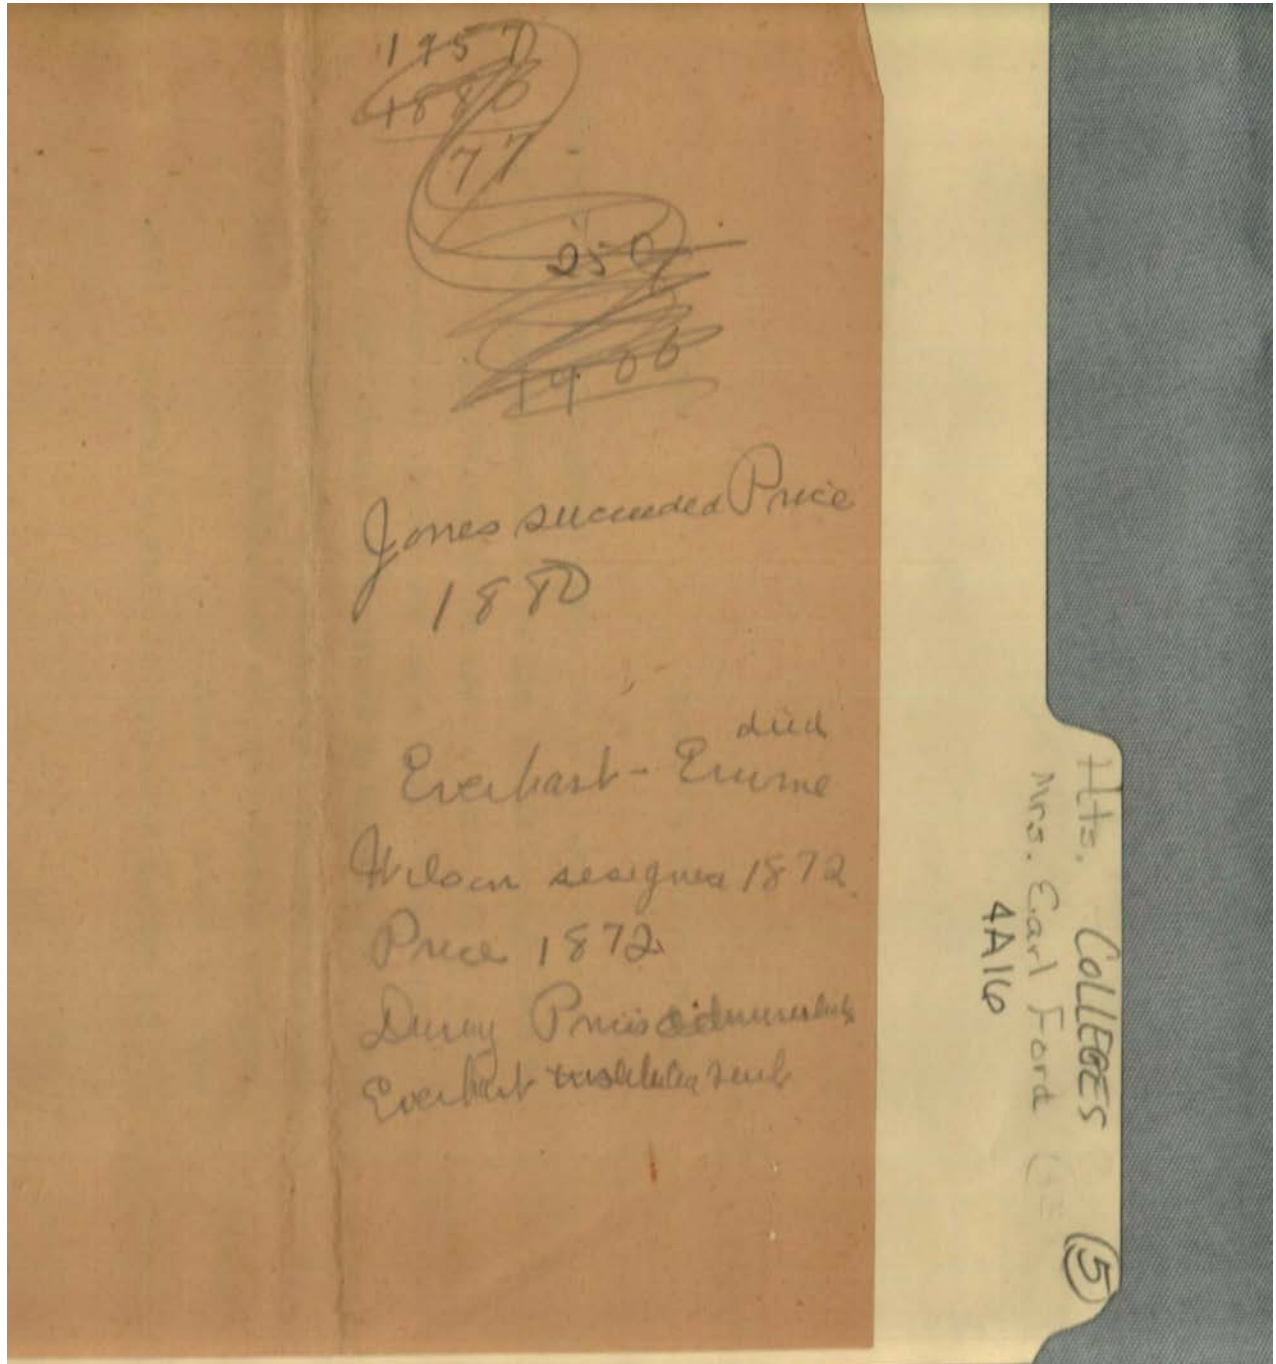 1957
1880
77
250
1400
Jones succeeded Price
1880
died
Everhart -
Wilson resigned 1872
Price 1872
During Price's
Everhart
Hts. COLLEGES
Mrs. Earl Ford
4A16
5